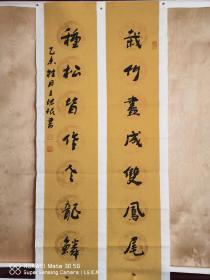 栽竹盡成雙鳳尾
種松皆作老龍鱗
乙未桂月王
書
HUAWEI Mate 30 5G
SuperSensing Camera | LEICA